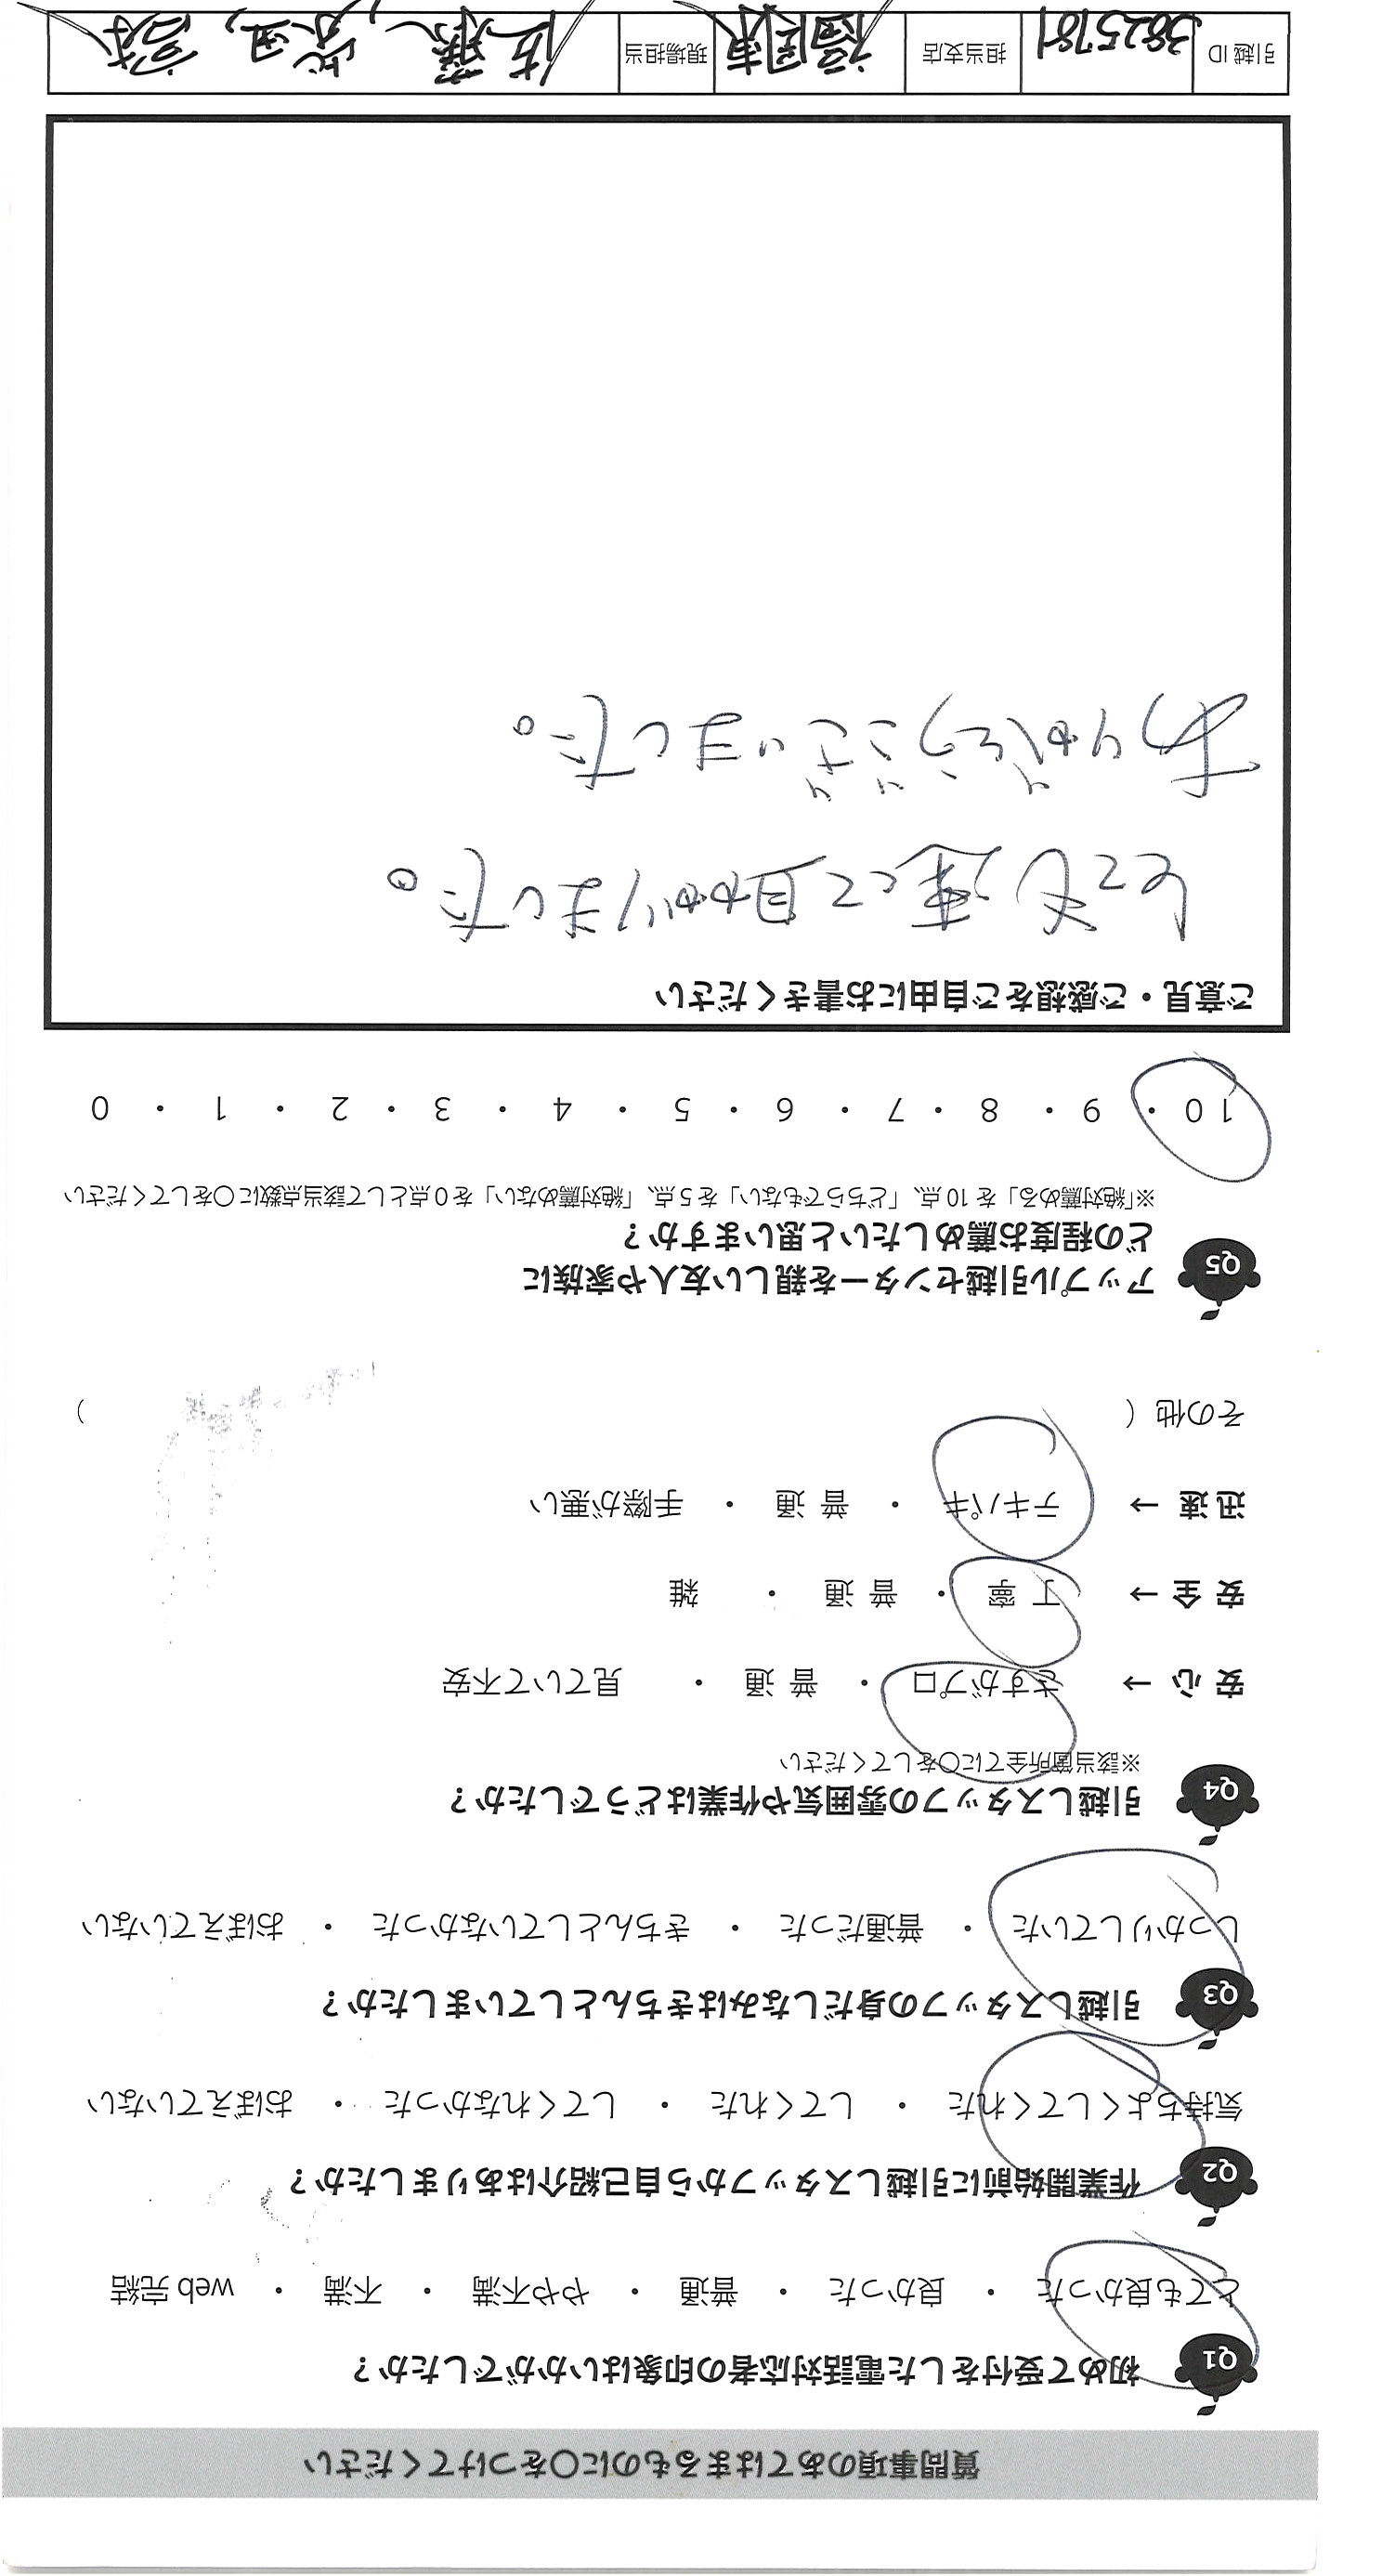 質問事項のあてはまるものに〇をつけてください
Q1 初めて受付をした電話対応者の印象はいかがでしたか?
とても良かった ・ 良かった ・ 普通 ・ やや不満 ・ 不満 ・ web 完結
Q2 作業開始前に引越しスタッフから自己紹介はありましたか?
気持ちよくしてくれた ・ してくれた ・ してくれなかった ・ おぼえていない
Q3 引越しスタッフの身だしなみはきちんとしていましたか?
しっかりしていた ・ 普通だった ・ きちんとしていなかった ・ おぼえていない
Q4 引越しスタッフの雰囲気や作業はどうでしたか?
※該当箇所全てに〇をしてください
安 心 → さすがプロ ・ 普 通 ・ 見ていて不安
安 全 → 丁 寧 ・ 普 通 ・ 雑
迅 速 → テキパキ ・ 普 通 ・ 手際が悪い
その他 ( )
Q5 アップル引越センターを親しい友人や家族に
どの程度お薦めしたいと思いますか?
※「絶対薦める」を 10 点、「どちらでもない」を 5 点、「絶対薦めない」を 0 点として該当点数に〇をしてください
10 ・ 9 ・ 8 ・ 7 ・ 6 ・ 5 ・ 4 ・ 3 ・ 2 ・ 1 ・ 0
ご意見・ご感想をご自由にお書きください
とても速くて助かりました。
ありがとうございました。
引越 ID 3825781 担当支店 福岡東 現場担当 佐藤、